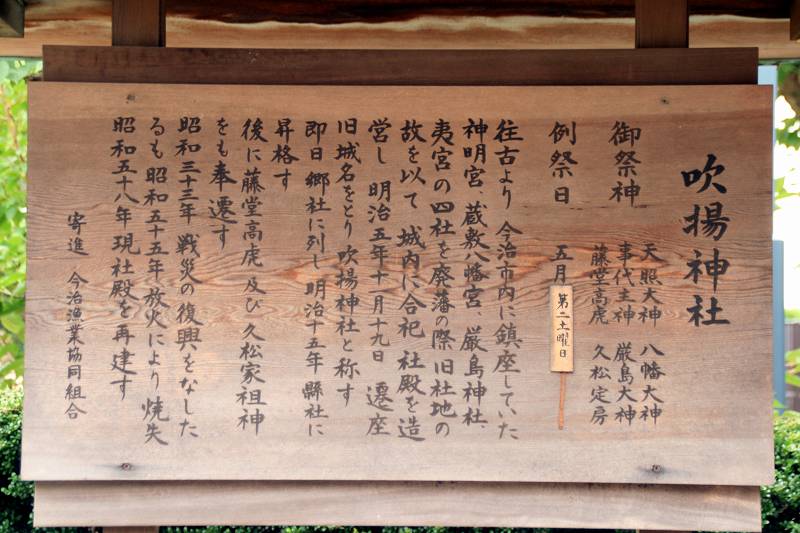 吹揚神社
御祭神
天照大神 八幡大神
事代主神 厳島大神
藤堂高虎 久松定房
例祭日 五月
第二土曜日
往古より 今治市内に鎮座していた
神明宮、蔵敷八幡宮、厳島神社、
夷宮の四社を廃藩の際旧社地の
故を以て 城内に合祀 社殿を造
営し 明治五年十月十九日 遷座
旧城名をとり吹揚神社と称す
即日 郷社に列し 明治十五年 縣社に
昇格す
後に藤堂高虎 及び 久松家祖神
をも奉遷す
昭和三十三年 戦災の復興をなした
るも昭和五十五年放火により焼失
昭和五十八年現社殿を再建す
寄進 今治漁業協同組合